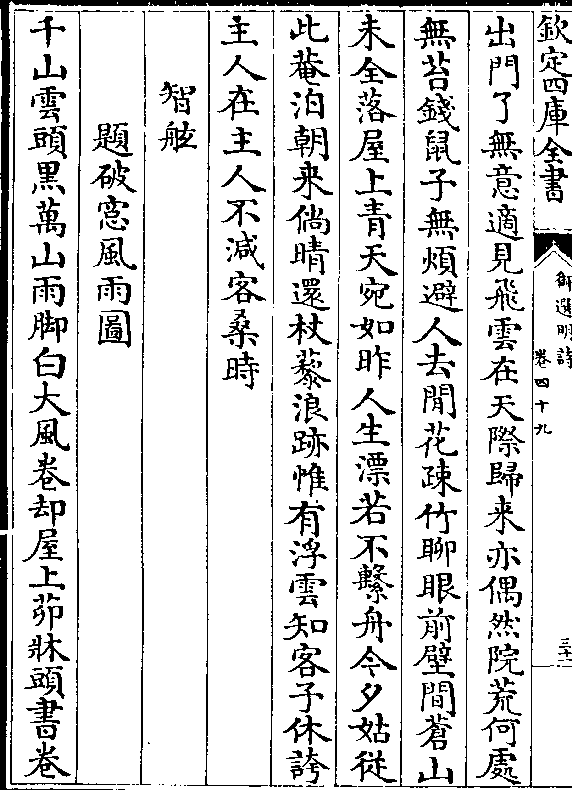 欽定四庫全書
御選明詩
卷四十九
三十二
出門了無意適見飛雲在天際歸来亦偶然院荒何處
無苔錢鼠子無煩避人去閒花疎竹聊眼前壁間蒼山
未全落屋上青天宛如昨人生漂若不繫舟今夕姑従
此菴泊朝来倘晴還杖藜浪跡惟有浮雲知客子休誇
主人在主人不減客桑時
智舷
題破窓風雨圖
千山雲頭黒萬山雨脚白大風卷却屋上茆牀頭書卷